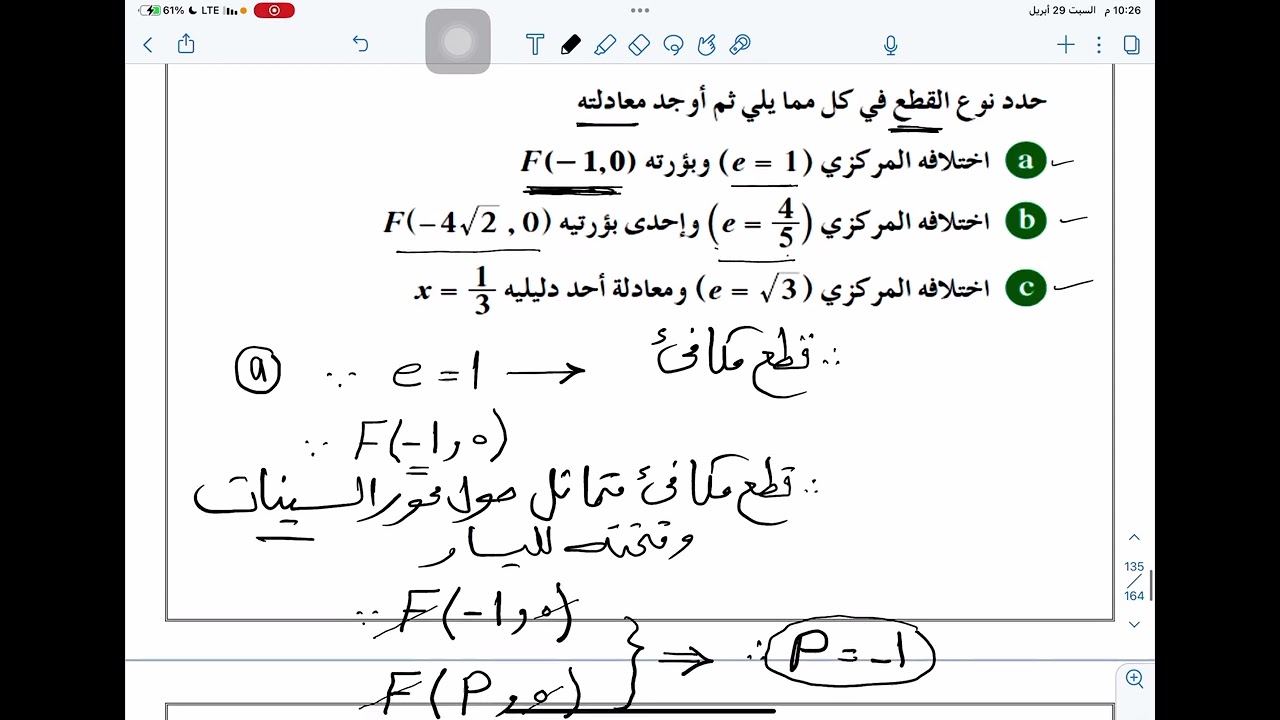 61% LTE
10:26 م السبت 29 أبريل
حدد نوع القطع في كل مما يلي ثم أوجد معادلته
a اختلافه المركزي (e = 1) وبؤرته F(−1,0)
b اختلافه المركزي (e = 4/5) وإحدى بؤرتيه F(−4√2 , 0)
c اختلافه المركزي (e = √3) ومعادلة أحد دليليه x = 1/3
a ∵ e = 1 → ∴ قطع مكافئ
∵ F(-1,0)
∴ قطع مكافئ متماثل حول محور السينات
وفتحته لليسار
∵ F(-1,0)
F(P,0)
⇒ ∴ P = -1
135
164